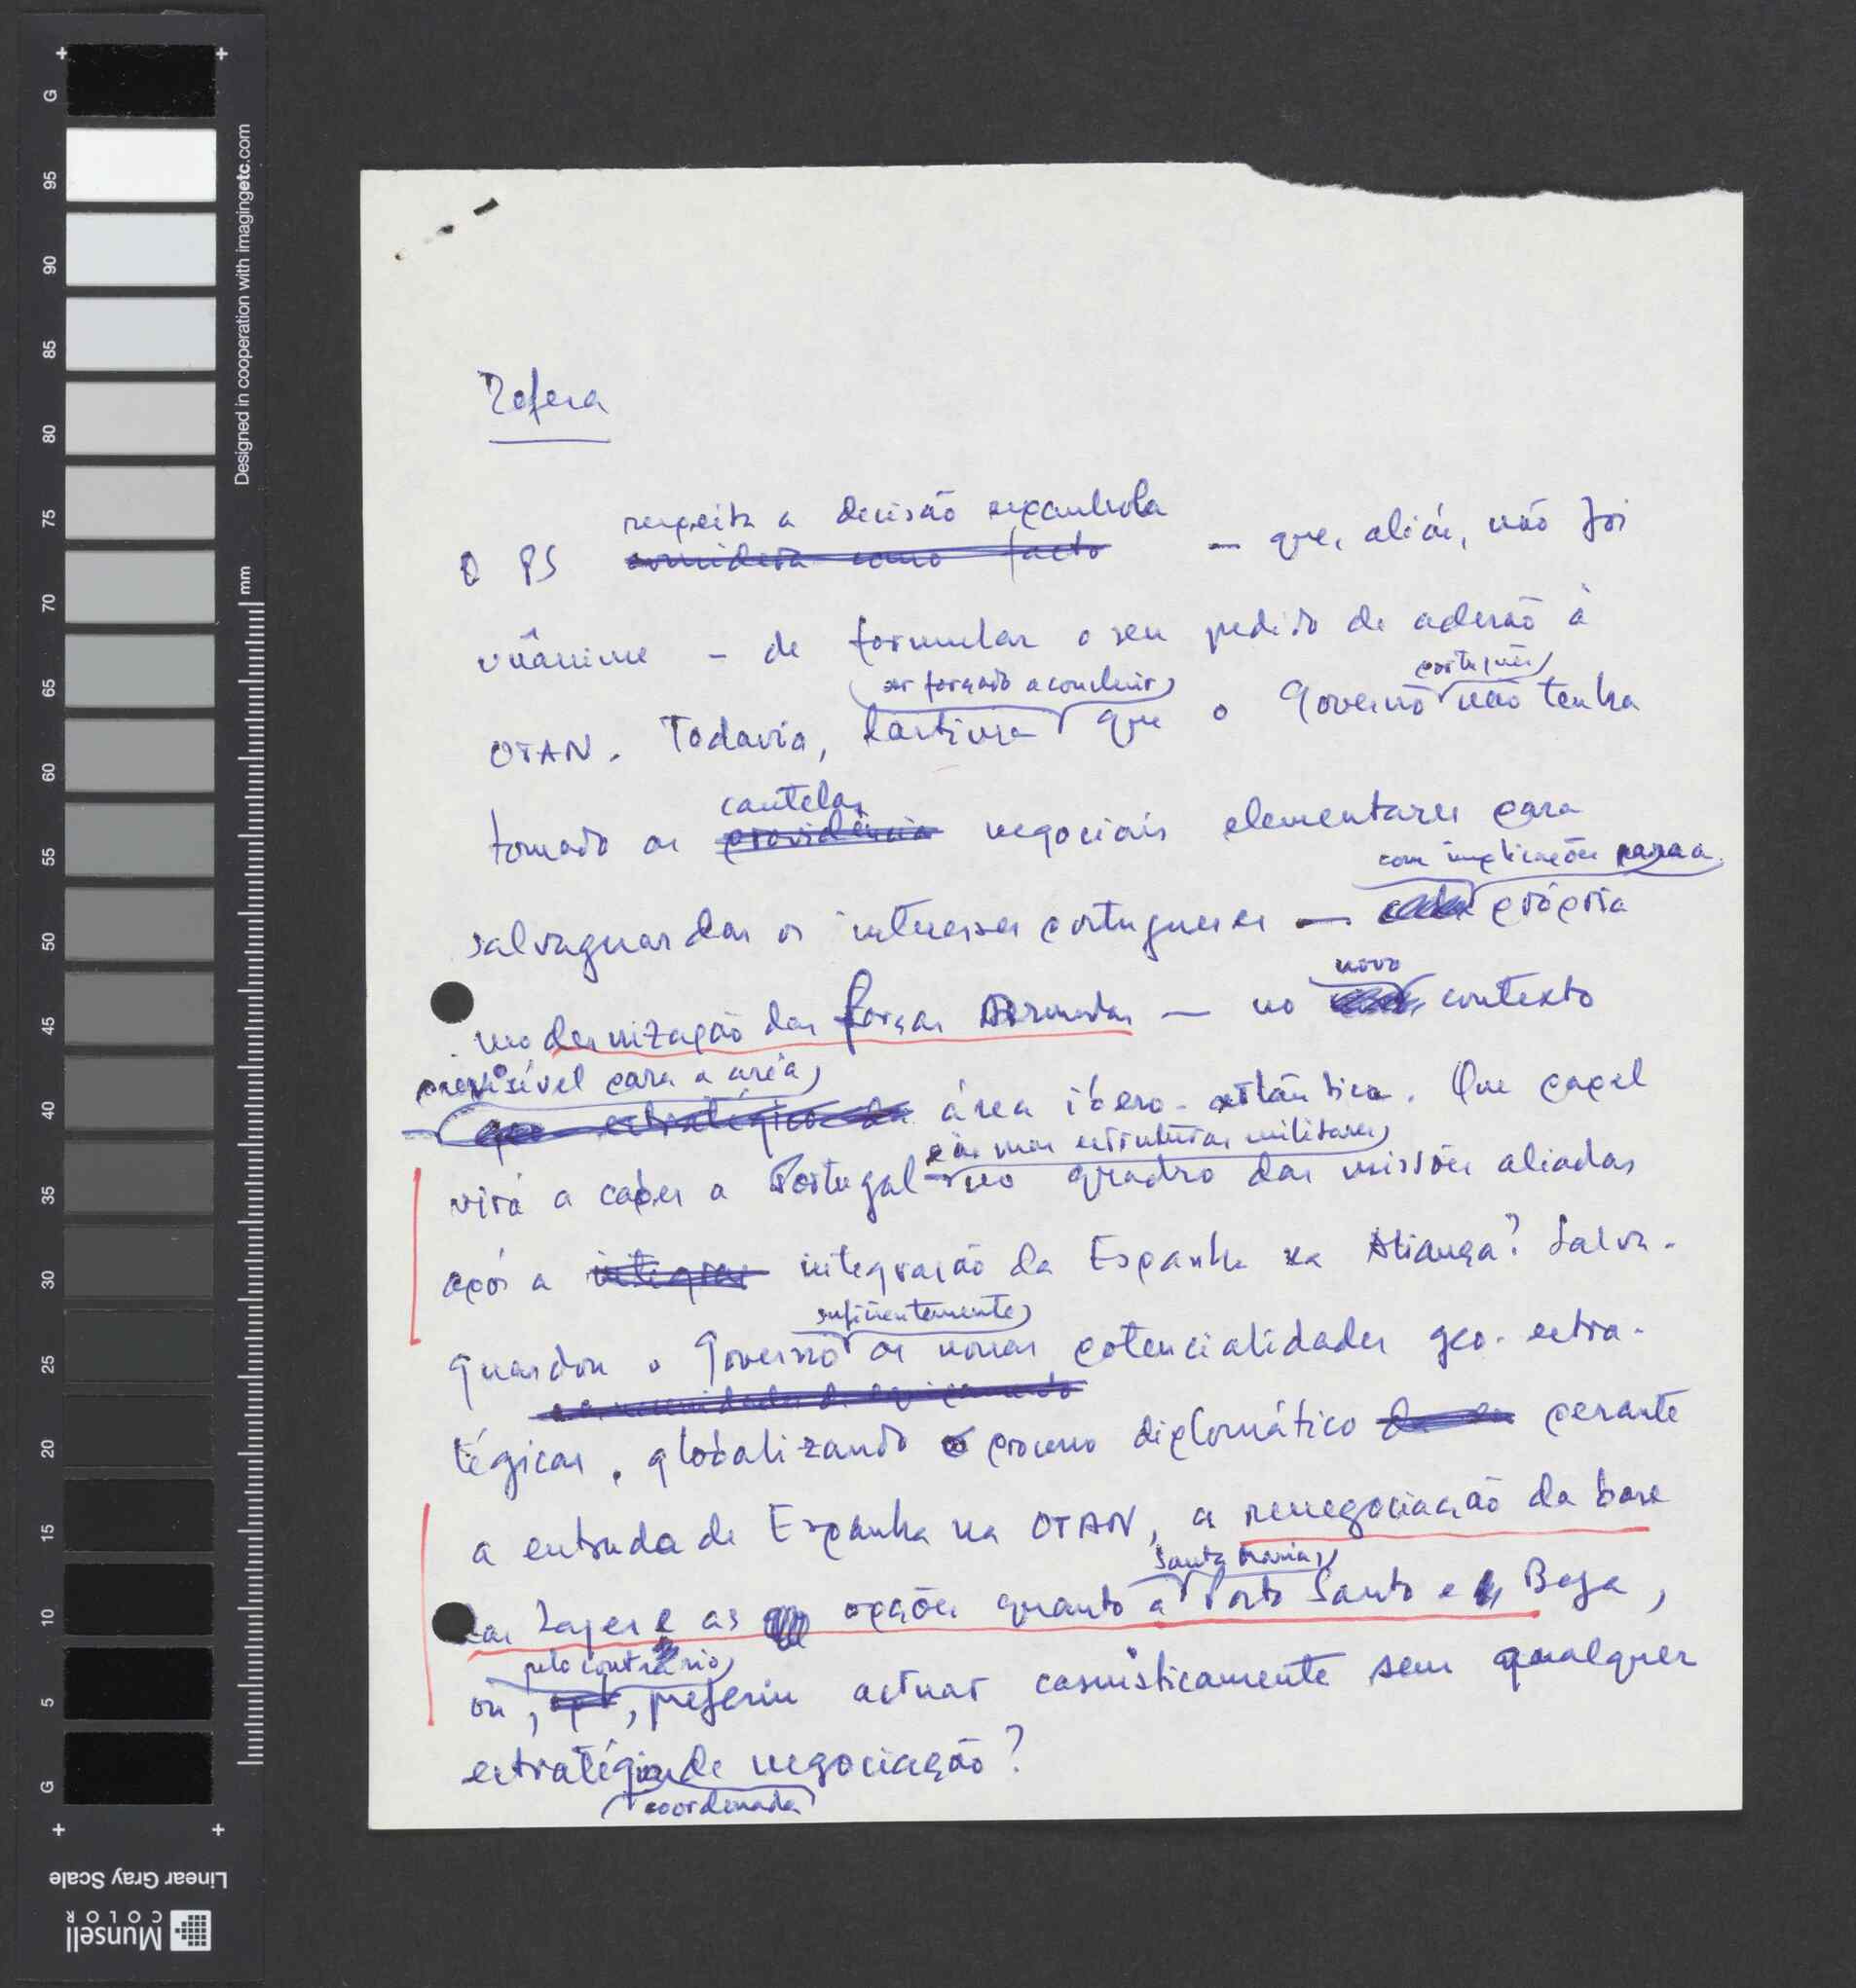 Defesa
respeita a decisão espanhola
O PS considera como facto — que, aliás, não foi
unânime — de formular o seu pedido de adesão à
ser forçado a concluir português
OTAN. Todavia, lastima que o Governo não tenha
cautelas
tomado as providência negociais elementares para
com implicações para a
salvaguardar os interesses portugueses — própria
novo
modernização das Forças Armadas — no contexto
previsível para a área
geo estratégico da área ibero-atlântica. Que papel
nas estruturas militares
virá a caber a Portugal no quadro das missões aliadas
após a integrar integração da Espanha na Aliança? Salva-
suficientemente
guardou o Governo as novas potencialidades geo-estra-
tégicas, globalizando o processo diplomático perante
a entrada de Espanha na OTAN, a renegociação da base
Santa Maria,
das Lajes e as opções quanto a Porto Santo e Beja,
pelo contrário
ou, , preferiu actuar casuisticamente sem qualquer
estratégia de negociação?
coordenada
G
95
90
85
80
75
70
65
60
55
50
45
40
35
30
25
20
15
10
5
G
mm
Designed in cooperation with imagingetc.com
Linear Gray Scale
Munsell
COLOR